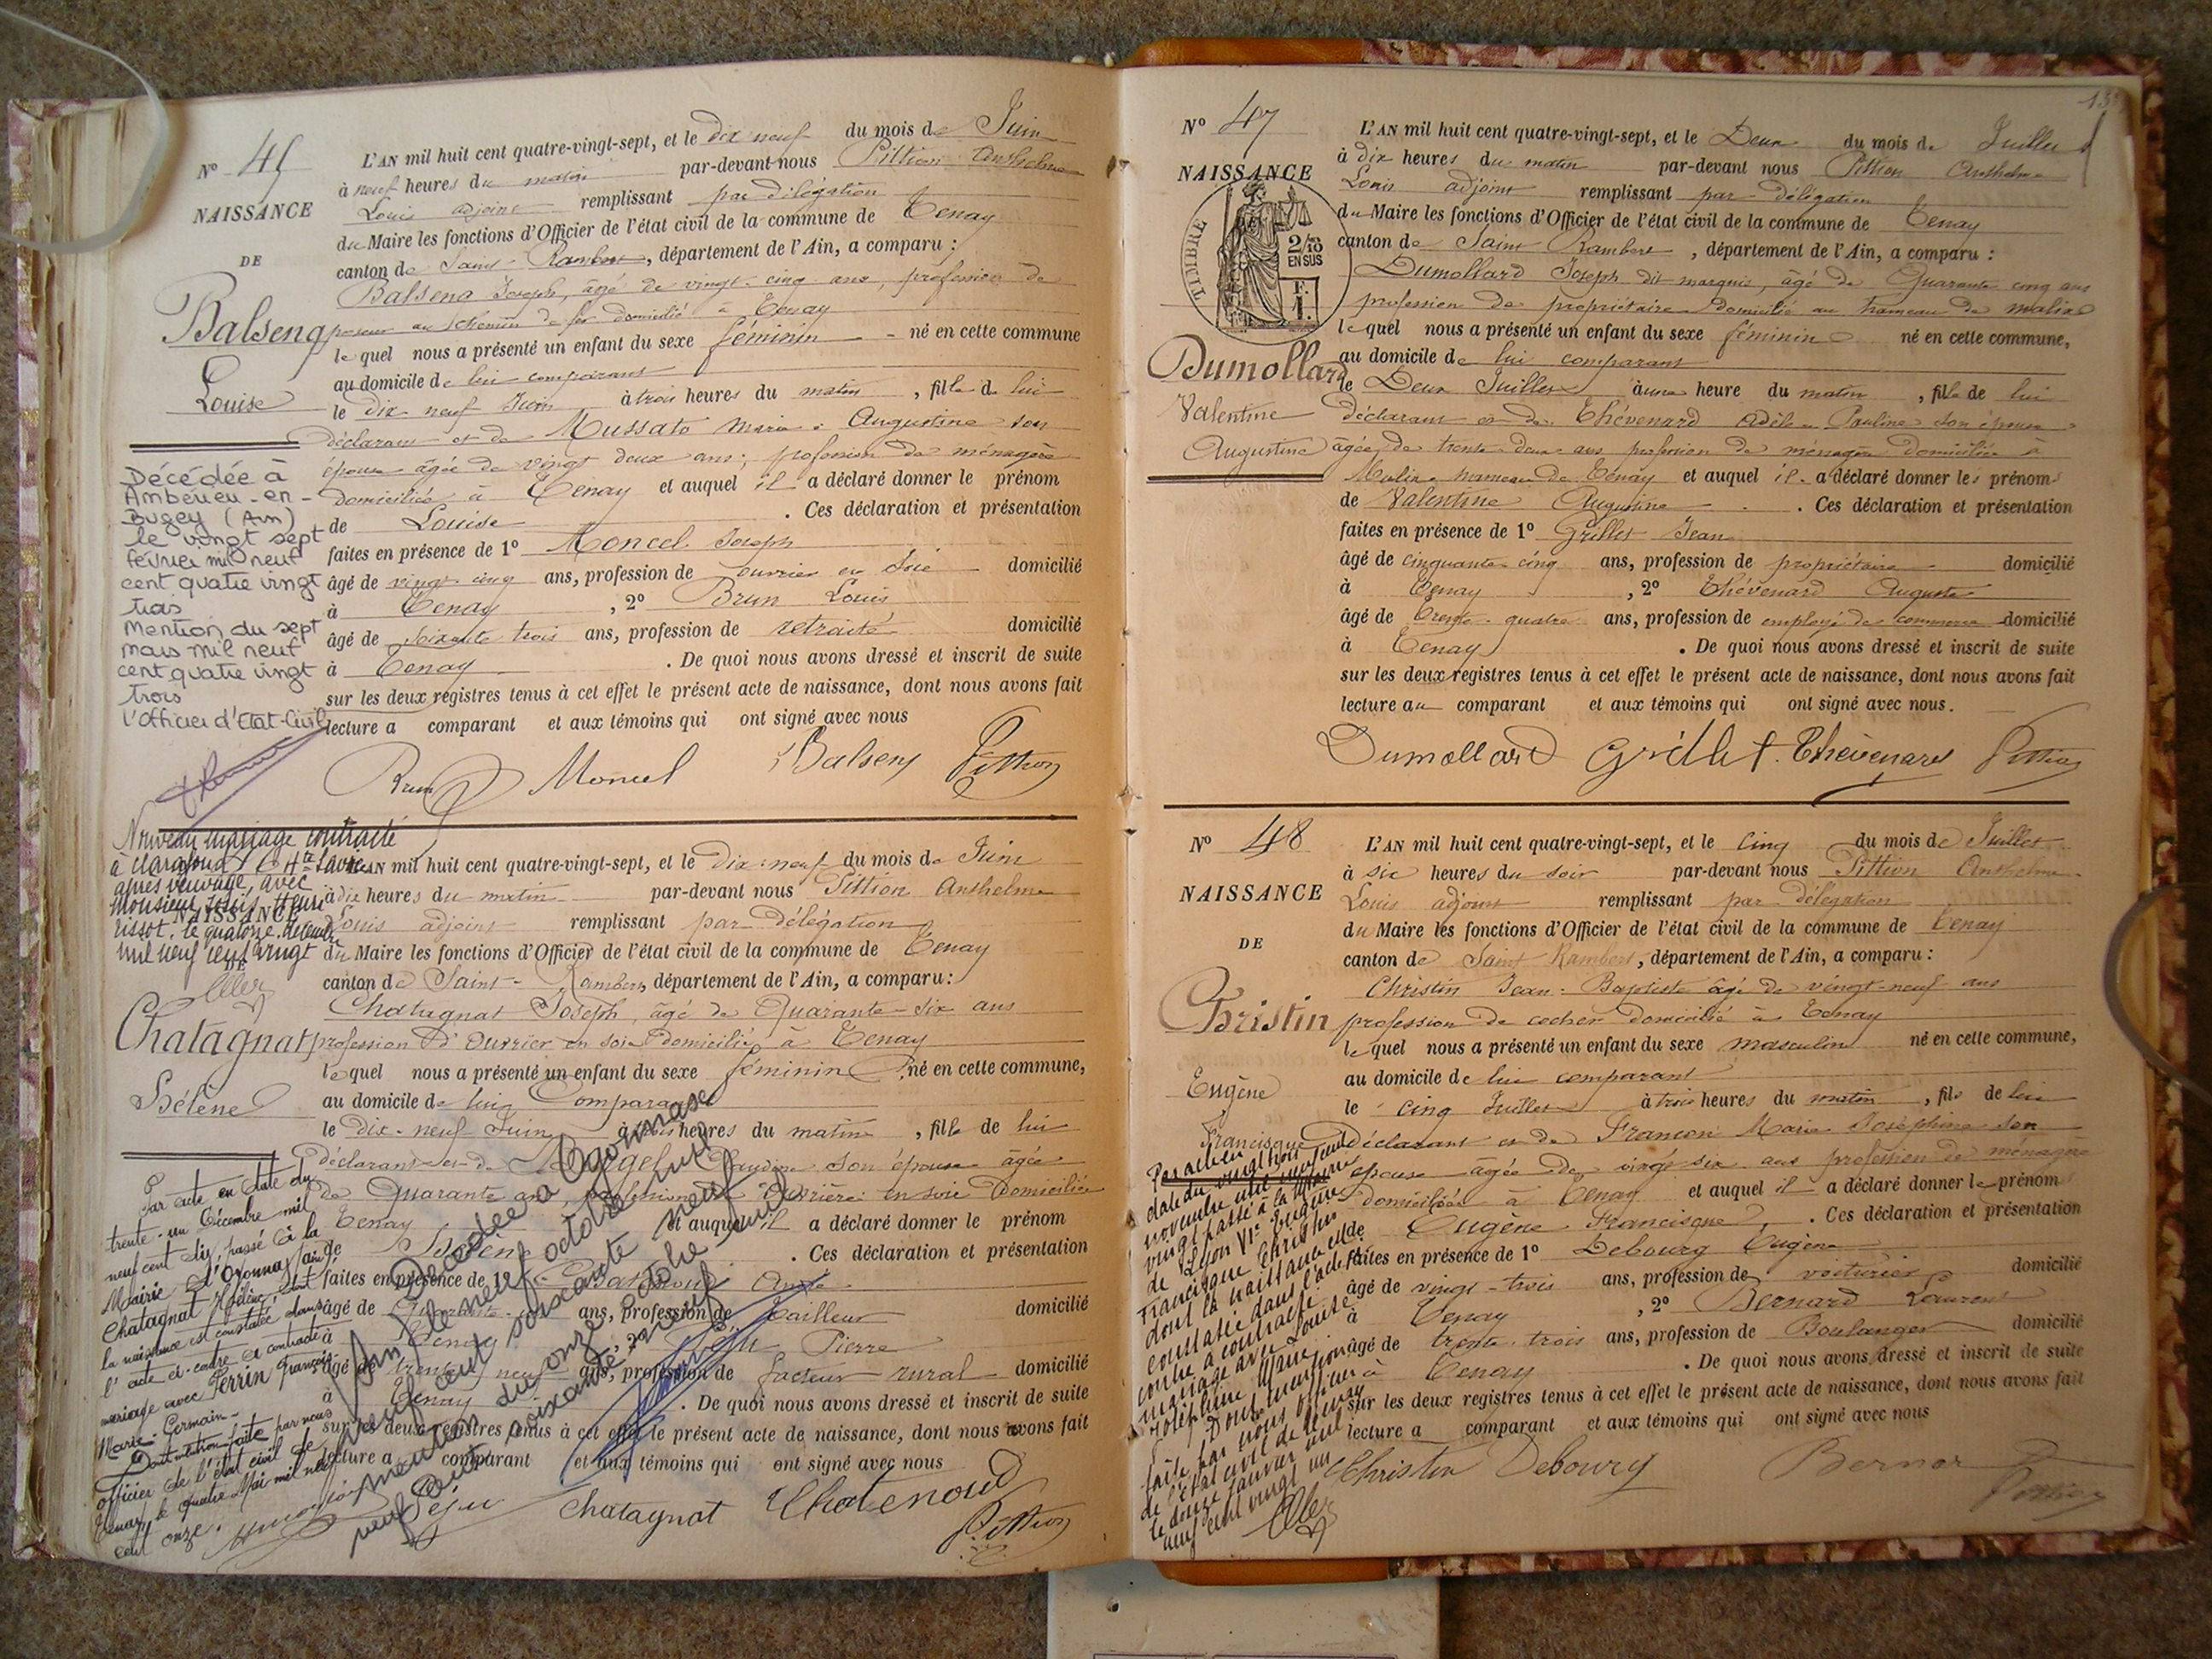 N° 45
NAISSANCE
DE
Balseng
Louise
L'AN mil huit cent quatre-vingt-sept, et le dix neuf du mois de Juin
à neuf heures du matin par-devant nous Pittion Anthelme
Louis adjoint remplissant par délégation
du Maire les fonctions d'Officier de l'état civil de la commune de Tenay
canton de Saint-Rambert, département de l'Ain, a comparu :
Balseng Joseph, âgé de vingt-cinq ans, profession de
poseur au chemin de fer domicilié à Tenay
lequel nous a présenté un enfant du sexe féminin né en cette commune
au domicile de lui comparant
le dix neuf Juin à trois heures du matin, fille de lui
déclarant et de Mussato Marie Augustine son
épouse âgée de vingt deux ans, profession de ménagère
domiciliée à Tenay et auquel il a déclaré donner le prénom
de Louise. Ces déclaration et présentation
faites en présence de 1° Moncel Joseph
âgé de vingt-cinq ans, profession de ouvrier en soie domicilié
à Tenay, 2° Brun Louis
âgé de soixante trois ans, profession de retraité domicilié
à Tenay. De quoi nous avons dressé et inscrit de suite
sur les deux registres tenus à cet effet le présent acte de naissance, dont nous avons fait
lecture a comparant et aux témoins qui ont signé avec nous
Brun Moncel Balseng Pittion
Décédée à
Ambérieu-en-
Bugey (Ain)
le vingt sept
février mil neuf
cent quatre vingt
trois
Mention du sept
mars mil neuf
cent quatre vingt
trois
L'Officier d'Etat-Civil
Nouveau mariage contracté
à Clarafond Hte Savoie
après veuvage, avec
Monsieur Henri
le quatorze décembre
mil neuf cent vingt
NAISSANCE
DE
Chatagnat
Hélène
L'AN mil huit cent quatre-vingt-sept, et le dix-neuf du mois de Juin
à dix heures du matin par-devant nous Pittion Anthelme
Louis adjoint remplissant par délégation
du Maire les fonctions d'Officier de l'état civil de la commune de Tenay
canton de Saint-Rambert, département de l'Ain, a comparu :
Chatagnat Joseph, âgé de Quarante-six ans
profession d'ouvrier en soie domicilié à Tenay
lequel nous a présenté un enfant du sexe féminin né en cette commune,
au domicile de lui Comparant
le Dix-neuf Juin à trois heures du matin, fille de lui
déclarant et de son épouse âgée
de Quarante ans, profession de ouvrière en soie Domiciliée
à Tenay et auquel il a déclaré donner le prénom
de Hélène. Ces déclaration et présentation
faites en présence de 1°
âgé de Quarante ans, profession de tailleur domicilié
à Tenay, 2° Péju Pierre
âgé de trente neuf ans, profession de facteur rural domicilié
à Tenay. De quoi nous avons dressé et inscrit de suite
sur les deux registres tenus à cet effet le présent acte de naissance, dont nous avons fait
lecture a comparant et aux témoins qui ont signé avec nous
Péju Chatagnat Chatenoud Pittion
Par acte en date du
trente-un Décembre mil
neuf cent dix, passé à la
Mairie d'Oyonnax (Ain)
Chatagnat Hélène, dont
la naissance est constatée dans
l'acte ci-contre a contracté
mariage avec Perrin François
Marie-Germain.
Dont mention faite par nous
officier de l'état civil de
Tenay, le quatre Mai mil neuf
cent onze.
Décédée à Oyonnax
(Ain) le neuf octobre mil
neuf cent soixante neuf
mention du onze octobre mil
neuf cent soixante neuf
N° 47
NAISSANCE
TIMBRE
2/10
EN SUS
F.
1.
Dumollard
Valentine
Augustine
L'AN mil huit cent quatre-vingt-sept, et le Deux du mois de Juillet
à dix heures du matin par-devant nous Pittion Anthelme
Louis adjoint remplissant par délégation
du Maire les fonctions d'Officier de l'état civil de la commune de Tenay
canton de Saint Rambert, département de l'Ain, a comparu :
Dumollard Joseph dit marquis, âgé de Quarante cinq ans
profession de propriétaire domicilié au hameau de malix
lequel nous a présenté un enfant du sexe féminin né en cette commune,
au domicile de lui comparant
le Deux Juillet à une heure du matin, fille de lui
déclarant et de Thévenard Adèle Pauline son épouse
âgée de trente-deux ans profession de ménagère domiciliée à
Malix hameau de Tenay et auquel il a déclaré donner les prénoms
de Valentine Augustine. Ces déclaration et présentation
faites en présence de 1° Grillet Jean
âgé de cinquante cinq ans, profession de propriétaire domicilié
à Tenay, 2° Thévenard Auguste
âgé de trente-quatre ans, profession de employé de commerce domicilié
à Tenay. De quoi nous avons dressé et inscrit de suite
sur les deux registres tenus à cet effet le présent acte de naissance, dont nous avons fait
lecture au comparant et aux témoins qui ont signé avec nous.
Dumollard Grillet Thévenard Pittion
N° 48
NAISSANCE
DE
Christin
Eugène
Francisque
L'AN mil huit cent quatre-vingt-sept, et le cinq du mois de Juillet
à six heures du soir par-devant nous Pittion Anthelme
Louis adjoint remplissant par délégation
du Maire les fonctions d'Officier de l'état civil de la commune de Tenay
canton de Saint Rambert, département de l'Ain, a comparu :
Christin Jean-Baptiste âgé de vingt-neuf ans
profession de cocher domicilié à Tenay
lequel nous a présenté un enfant du sexe masculin né en cette commune,
au domicile de lui comparant
le cinq Juillet à trois heures du matin, fils de lui
déclarant et de Françon Marie Joséphine son
épouse âgée de vingt-six ans profession de ménagère
domiciliée à Tenay et auquel il a déclaré donner le prénom
de Eugène Francisque. Ces déclaration et présentation
faites en présence de 1° Debourg Eugène
âgé de vingt-trois ans, profession de voiturier domicilié
à Tenay, 2° Bernard Laurent
âgé de trente-trois ans, profession de Boulanger domicilié
à Tenay. De quoi nous avons dressé et inscrit de suite
sur les deux registres tenus à cet effet le présent acte de naissance, dont nous avons fait
lecture a comparant et aux témoins qui ont signé avec nous
Christin Debourg Bernar Pittion
Par acte en
date du vingt trois
novembre mil neuf cent
vingt passé à la Mairie
de Lyon VIe Eugène
Francisque Christin
dont la naissance est
constatée dans l'acte ci-
contre a contracté
mariage avec Louise
Joséphine Marie
Dont mention
faite par nous officier
de l'état civil de Tenay
le douze janvier mil
neuf cent vingt un